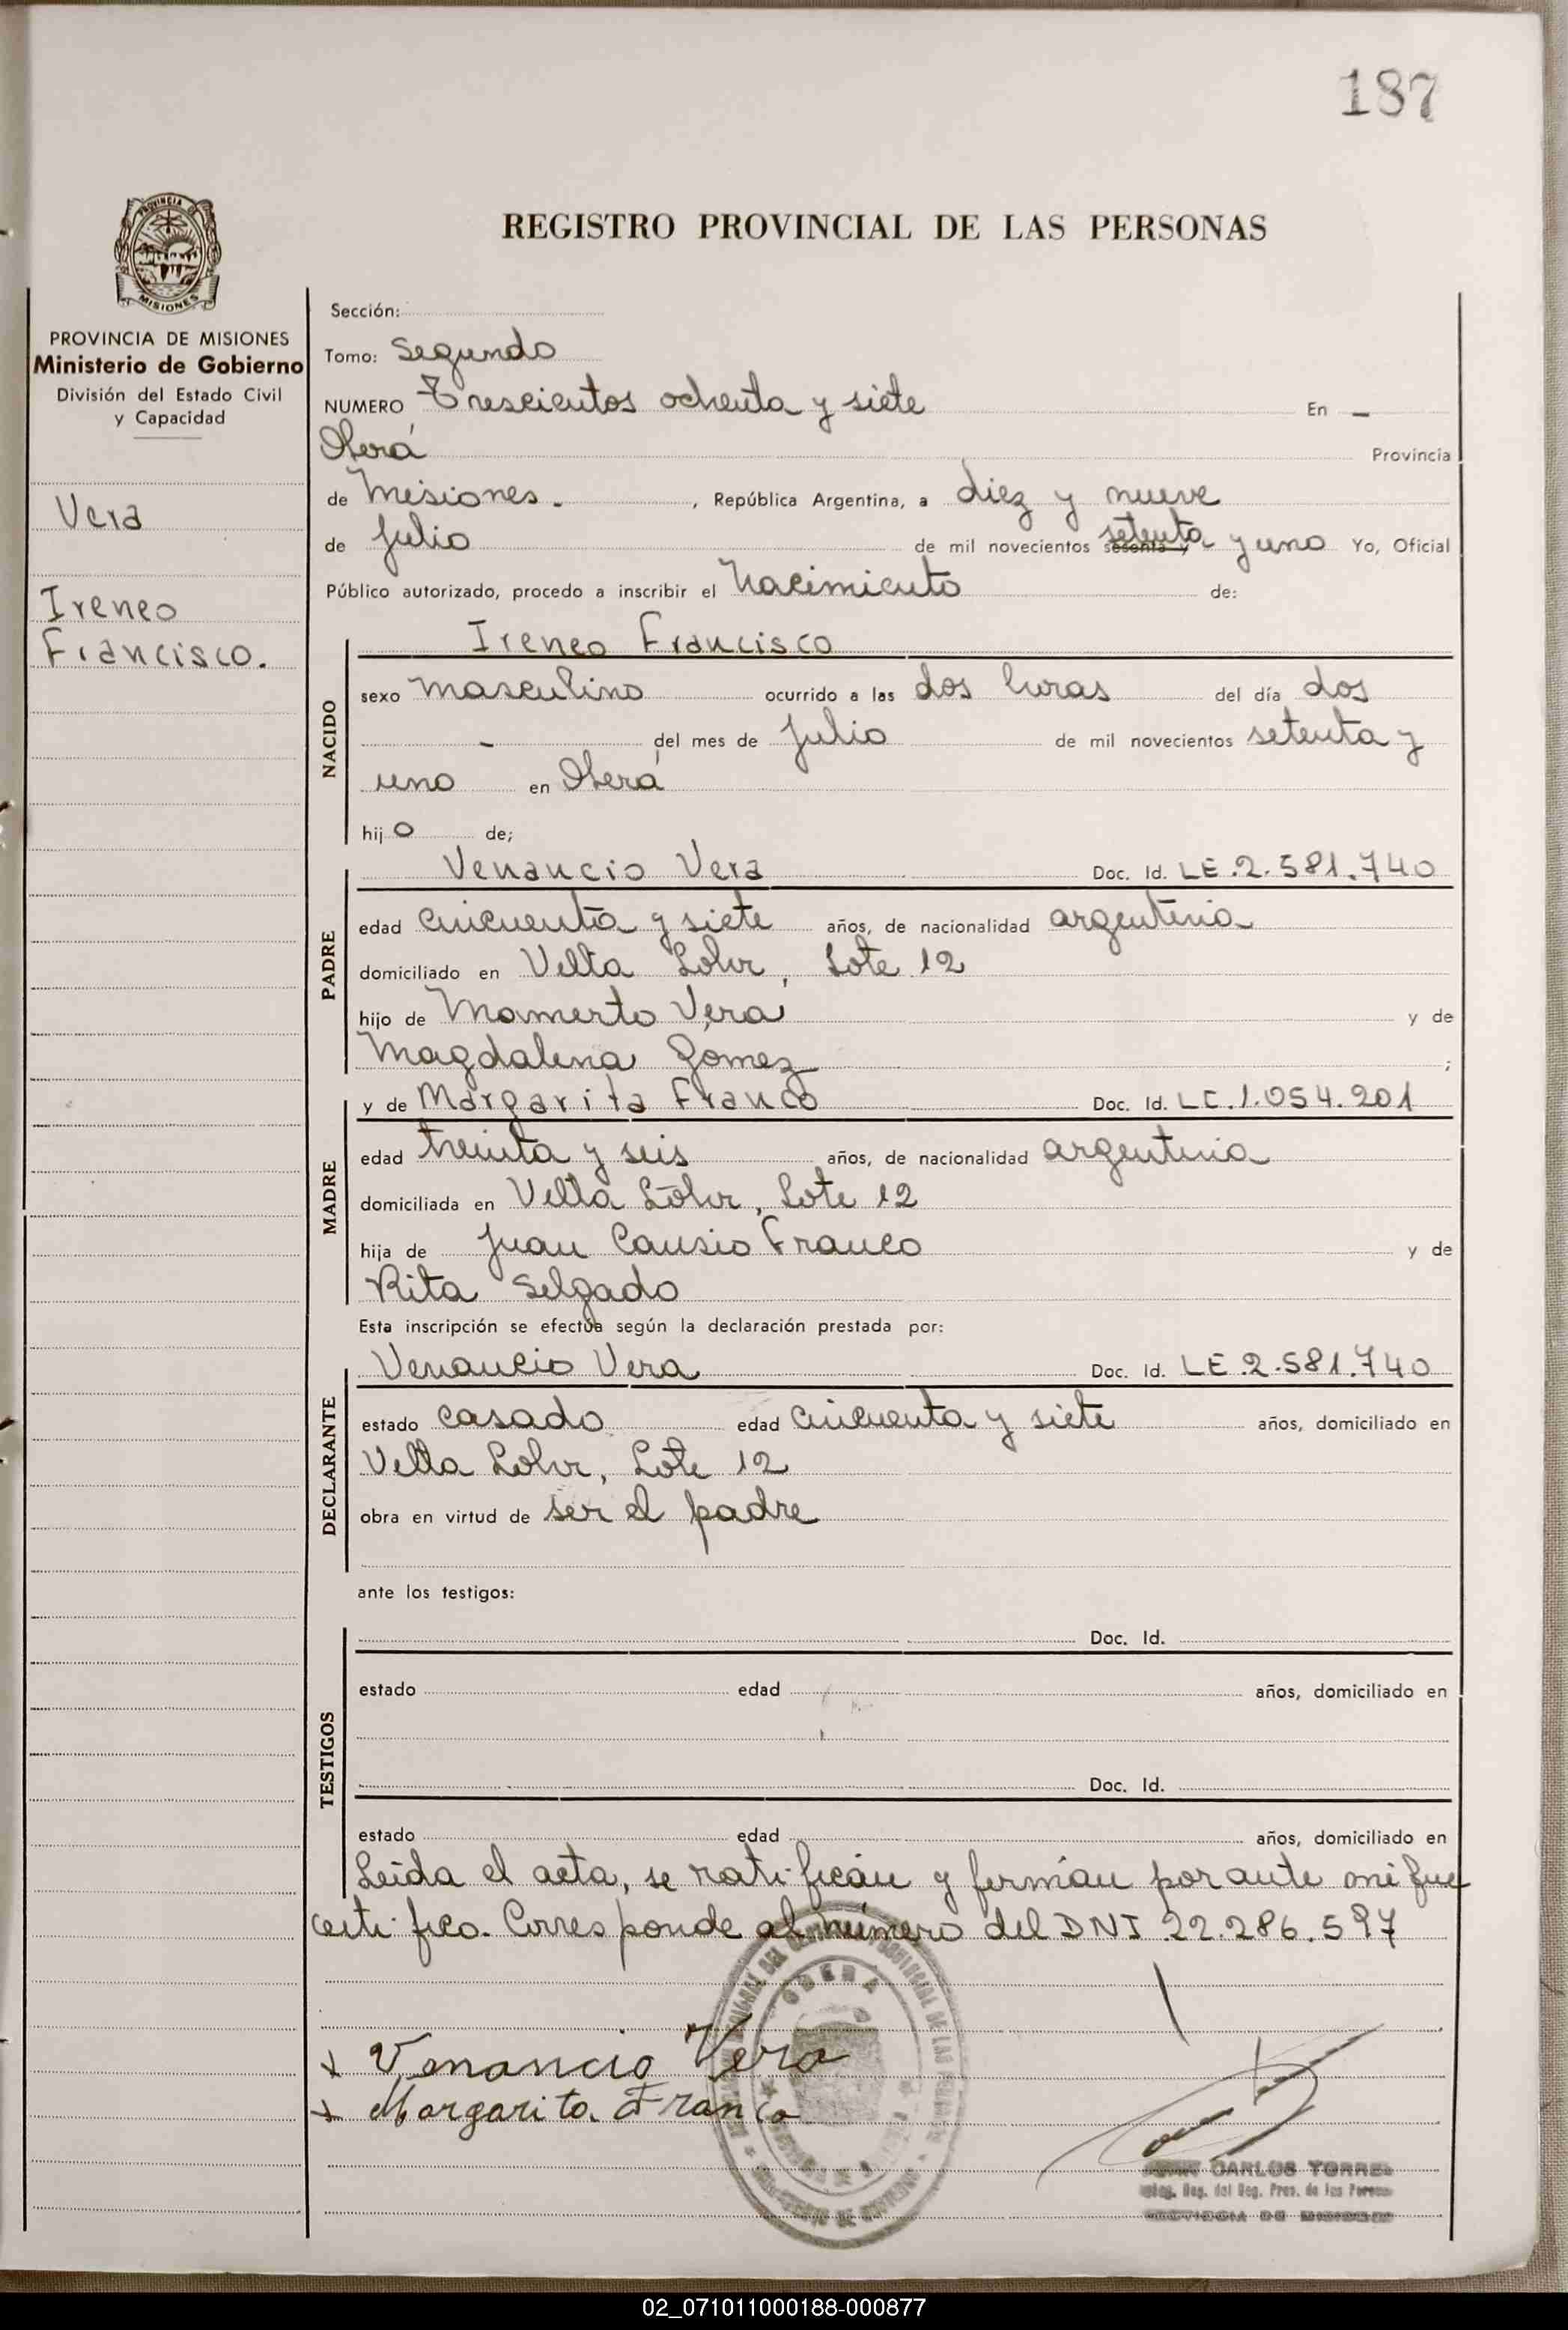 187
PROVINCIA DE
MISIONES
REGISTRO PROVINCIAL DE LAS PERSONAS
PROVINCIA DE MISIONES
Ministerio de Gobierno
División del Estado Civil
y Capacidad
Vera
Ireneo
Francisco.
Sección:
Tomo: Segundo
NUMERO Trescientos ochenta y siete En —
Oberá Provincia
de Misiones. , República Argentina, a diez y nueve
de Julio de mil novecientos sesenta y setenta y uno Yo, Oficial
Público autorizado, procedo a inscribir el Nacimiento de:
NACIDO
Ireneo Francisco
sexo masculino ocurrido a las dos horas del día dos
- del mes de Julio de mil novecientos setenta y
uno en Oberá
hijo de;
PADRE
Venancio Vera Doc. Id. LE.2.581.740
edad cincuenta y siete años, de nacionalidad argentina
domiciliado en Velta Lohr, Lote 12
hijo de Mamerto Vera y de
Magdalena Gomez ;
MADRE
y de Margarita Franco Doc. Id. LC.1.054.201
edad treinta y seis años, de nacionalidad argentina
domiciliada en Velta Lohr, Lote 12
hija de Juan Causio Franco y de
Rita Selgado
Esta inscripción se efectúa según la declaración prestada por:
DECLARANTE
Venancio Vera Doc. Id. LE.2.581.740
estado casado edad cincuenta y siete años, domiciliado en
Velta Lohr, Lote 12
obra en virtud de ser el padre
ante los testigos:
TESTIGOS
Doc. Id.
estado edad años, domiciliado en
Doc. Id.
estado edad años, domiciliado en
Leida el acta, se ratifican y firman por ante mi que
certifico. Corresponde al número del DNI 22.286.597
OBERA
x Venancio Vera
x Margarita Franco
CARLOS TORRES
del Reg. Prov. de las Personas
PROVINCIA DE MISIONES
02_071011000188-000877